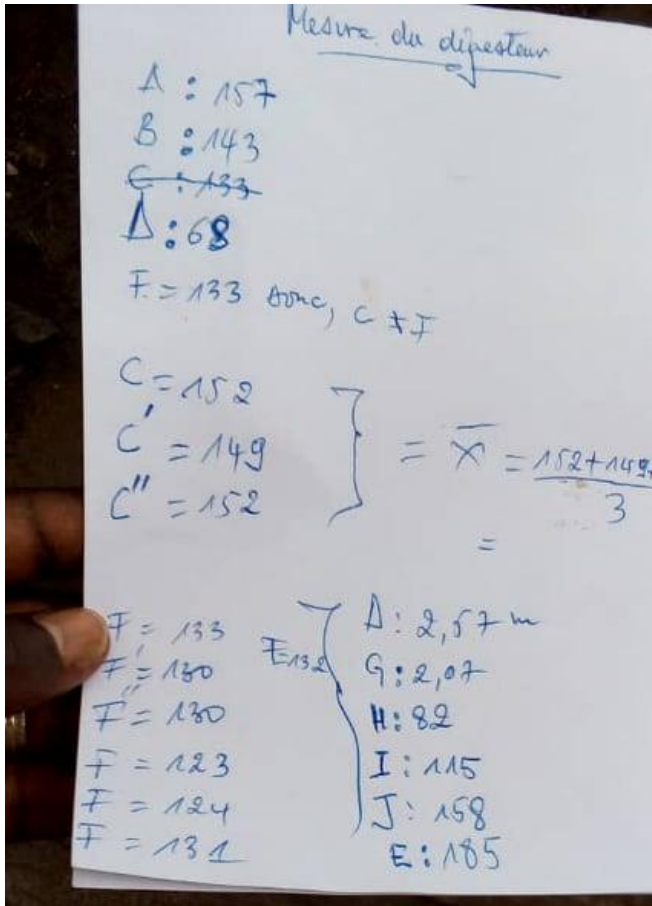 Mesure du digesteur
A : 157
B : 143
C : 133
D : 68
F = 133 donc, C ≠ F
C = 152
C' = 149
C'' = 152
= X̄ = 152+149+
3
=
F = 133
F' = 130
F'' = 130
F = 123
F = 124
F = 131
132
D : 2,57 m
G : 2,07
H : 82
I : 115
J : 158
E : 185